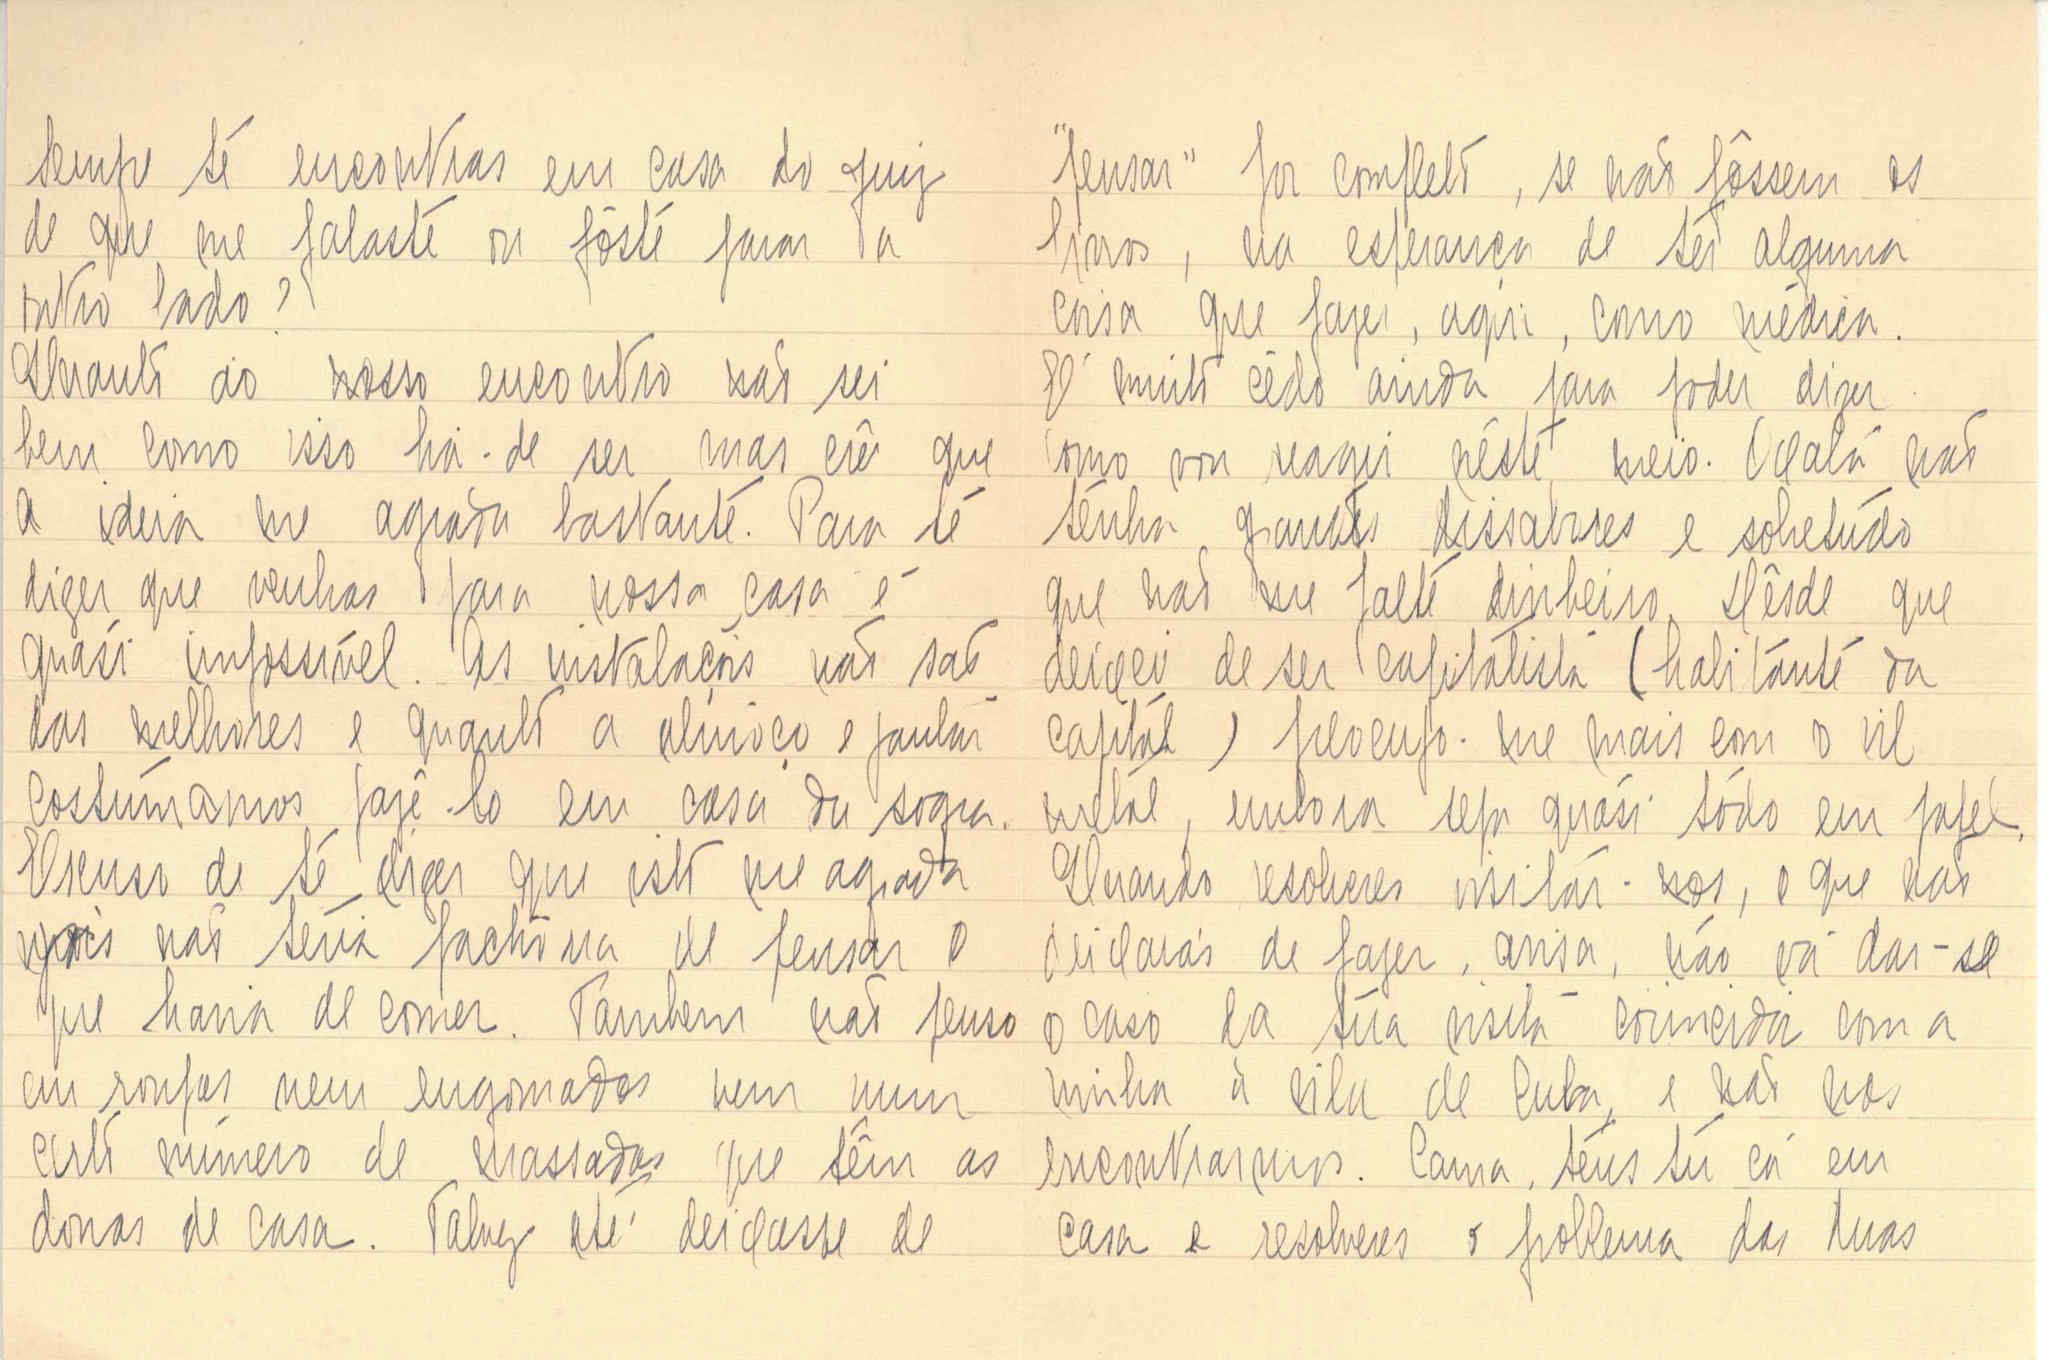 Sempre te encontras em casa do juiz
de que me falaste ou fôste parar a
outro lado?
Quanto ao nosso encontro não sei
bem como isso há-de ser mas crê que
a ideia me agrada bastante. Para te
dizer que venhas para nossa casa é
quási impossível. As instalações não são
das melhores e quanto a almoço e jantar
costumamos fazê-lo em casa da sogra.
Escuso de te dizer que isto me agrada
pois não teria pachorra de pensar o
que havia de comer. Tambem não penso
em roupas nem engomados nem num
certo número de massadas que têm as
donas de casa. Talvez até deixasse de
"pensar" por completo, se não fôssem os
livros, na esperança de ter alguma
coisa que fazer, aqui, como médica.
É muito cêdo ainda para poder dizer
como vou reagir nêste meio. Oxalá não
tenha grandes dissabores e sobretudo
que não me falte dinheiro. Dêsde que
deixei de ser capitalista (habitante da
capital) preocupo-me mais com o vil
metal, embora seja quási todo em papel.
Quando resolveres visitar-nos, o que não
deixarás de fazer, avisa, não vá dar-se
o caso da tua visita coincidir com a
minha à vila de Cuba, e não nos
encontrarmos. Cama, tens tu cá em
casa e resolveres o problema das duas